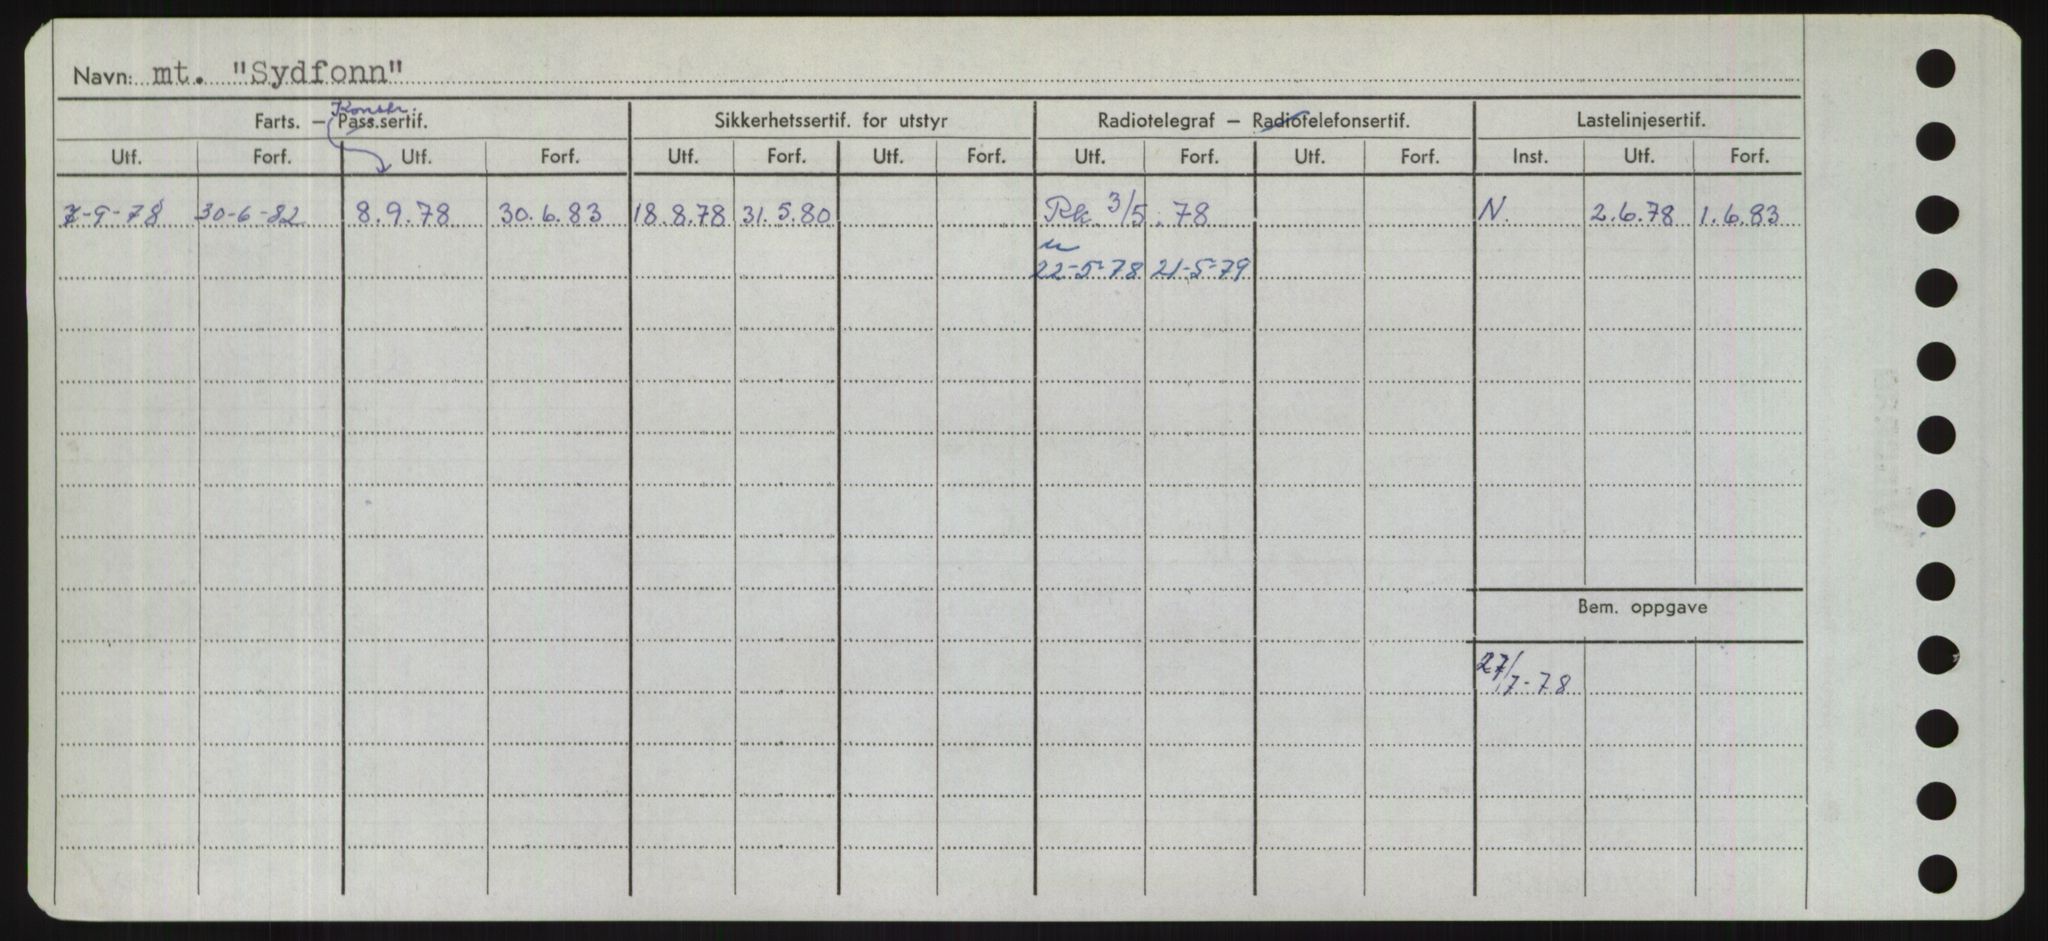 Navn: mt. "Sydfonn"
Konstr.
Farts. — Pass.sertif. Sikkerhetssertif. for utstyr Radiotelegraf — Radiotelefonsertif. Lastelinjesertif.
Utf. Forf. Utf. Forf. Utf. Forf. Utf. Forf. Utf. Forf. Utf. Forf. Inst. Utf. Forf.
7-9-78 30-6-82 8.9.78 30.6.83 18.8.78 31.5.80 Rk. 3/5.78 N. 2.6.78 1.6.83
22-5-78 21-5-79
Bem. oppgave
27/7-78